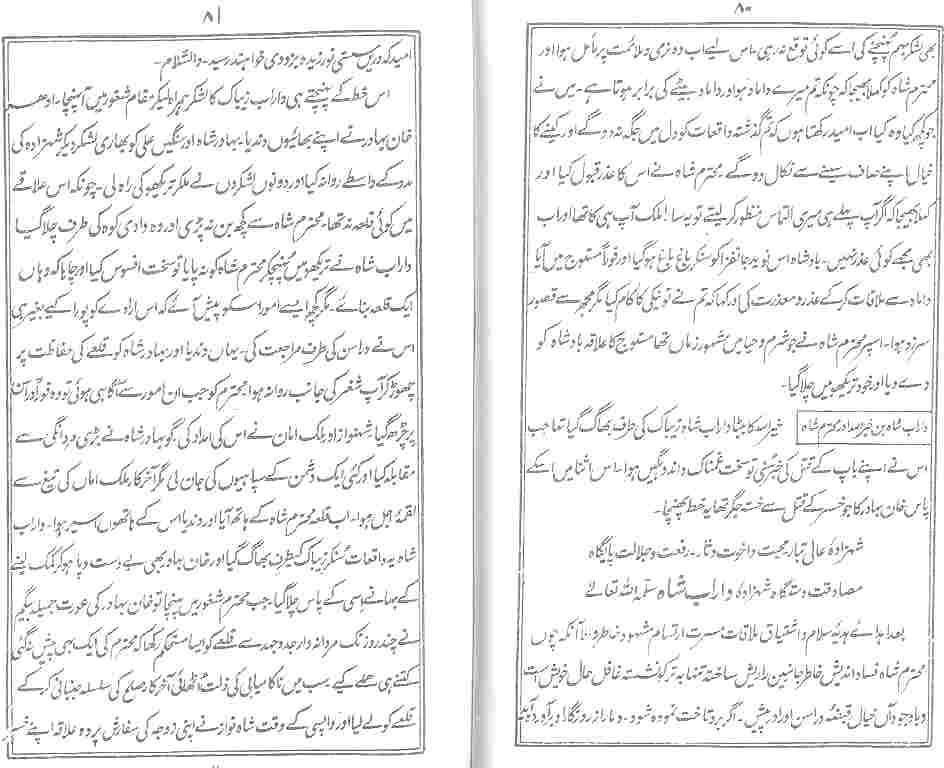 ۸۰
بھی لشکر ہم پہنچنے کی اسے کوئی توقع نہ رہی۔ اس لیے اب وہ نرمی و ملائمت پر مائل ہوا اور
محترم شاہ کو کہلا بھیجا کہ چونکہ تم میرے داماد ہو اور داماد بیٹے کی برابر ہوتا ہے۔ میں نے
جو کچھ کیا وہ کیا اب امید رکھتا ہوں کہ تم گذشتہ واقعات کو دل میں جگہ نہ دو گے اور کینے کا
خیال اپنے صاف سینے سے نکال دو گے محترم شاہ نے اس کا عذر قبول کیا اور
کہلا بھیجا کہ گر آپ پہلے ہی میری التماس منظور کر لیتے تو یہ سا را ملک آپ ہی کا تھا اور اب
بھی مجھے کوئی عذر نہیں۔ بادشاہ اس نوید جانفزا کو سنکر باغ باغ ہو گیا اور فوراً مستوج میں آیا
داماد سے ملاقات کر کے عذر و معذرت کی اور کہا کہ تم نے تو نیکی کا کام کیا مگر مجھ سے قصور
سرزد ہوا۔ اسپر محترم شاہ نے جو شرم و حیا میں مشہور زماں تھا مستوج کا علاقہ بادشاہ کو
دے دیا اور خود تریکھ میں چلا گیا۔
داراب شاہ بن خیراللہ اور محترم شاہ خیراللہ کا بیٹا داراب شاہ زیباک کی طرف بھاگ گیا تھا جب
اس نے اپنے باپ کے قتل کی خبر سُنی تو سخت غمناک و اندوہگیں ہوا۔ اس اثنا میں اسکے
پاس خان بہادر کا جو خسر کے قتل سے خستہ جگر تھا یہ خط پہنچا۔
شہزادۂ عالی تبار محبت و اخوت دثار۔ رفعت و جلالت پایگاہ
مصادقت دستگاہ شہزادہ داراب شاہ سلمہ اللہ تعالےٰ
بعد اہدائے ہدیۂ سلام و اشتیاق ملاقات مسرت ارتسام مشہود خاطر باد۔ آنکہ چوں
محترم شاہ فساد اندیش خاطر جانبین را ریش ساختہ تنہا بہ ترکو نشستہ غافل حال خویش است
و با وجود آں خیال قبضۂ دراسن او را در پیش۔ اگر بر و تاخت نموده شود۔ دمار از روزگار او برآوردہ آید
۸۱
امید کہ دریں سستی نورزیدہ بزودی خواہند رسید۔ والسّلام۔
اس خط کے پہنچتے ہی داراب زیباک کا لشکر ہمراہ لیکر مقام شغور میں آپہنچا۔ ادھر
خان بہادر نے اپنے بھائیوں دندیا۔ بہادر شاہ اور سنگیں علی کو بھاری لشکر دیکر شہزادہ کی
مدد کے واسطے روانہ کیا اور دونوں لشکروں نے ملکر تریکھو کی راہ لی۔ چونکہ اس علاقے
میں کوئی قلعہ نہ تھا۔ محترم شاہ سے کچھ بن نہ پڑی اور وہ وادی کوہ کی طرف چلا گیا
داراب شاہ نے تریکھو میں پہنچکر محترم شاہ کو نہ پایا تو سخت افسوس کیا اور چاہا کہ وہاں
ایک قلعہ بنائے۔ مگر کچھ ایسے امور اسکو پیش آئے کہ اس ارادے کو پورا کیے بغیر ہی
اس نے دراسن کی طرف مراجعت کی۔ یہاں دندیا اور بہادر شاہ کو قلعے کی حفاظت پر
چھوڑ کر آپ شغر کی جانب روانہ ہوا۔ محترم کو جب ان امور سے آگاہی ہوئی تو وہ فوراً دراسن
پر چڑھ گیا شہنواز اور ملک امان نے اس کی امداد کی گو بہادر شاہ نے بڑی مردانگی سے
مقابلہ کیا اور کئی ایک دشمن کے سپاہیوں کی جان لی مگر آخر کار ملک اماں کی تیغ سے
لقمۂ اجل ہوا۔ اب قلعہ محترم شاہ کے ہاتھ آیا اور دندیا اس کے ہاتھوں اسیر ہوا۔ داراب
شاہ یہ واقعات سُنکر زیباک کیطرف بھاگ گیا اور خان بہادر بھی بے دست و پا ہو کر کمک لینے
کے بہانے اسی کے پاس چلا گیا۔ جب محترم شغور میں پہنچا تو خان بہادر کی عورت جمیلہ بیگم
نے چند روز تک مردانہ وار جد و جہد سے قلعے کو ایسا مستحکم رکھا کہ محترم کی ایک بھی پیش نہ گئی
کتنے ہی حملے کیے سب میں ناکامیابی کی ذلت اُٹھائی آخر کار صلح کی سلسلہ جنبانی کر کے
قلعے کو لے لیا اور واپسی کے وقت شاہ نواز نے اپنی زوجہ کی سفارش پر وہ علاقہ اپنے خسر